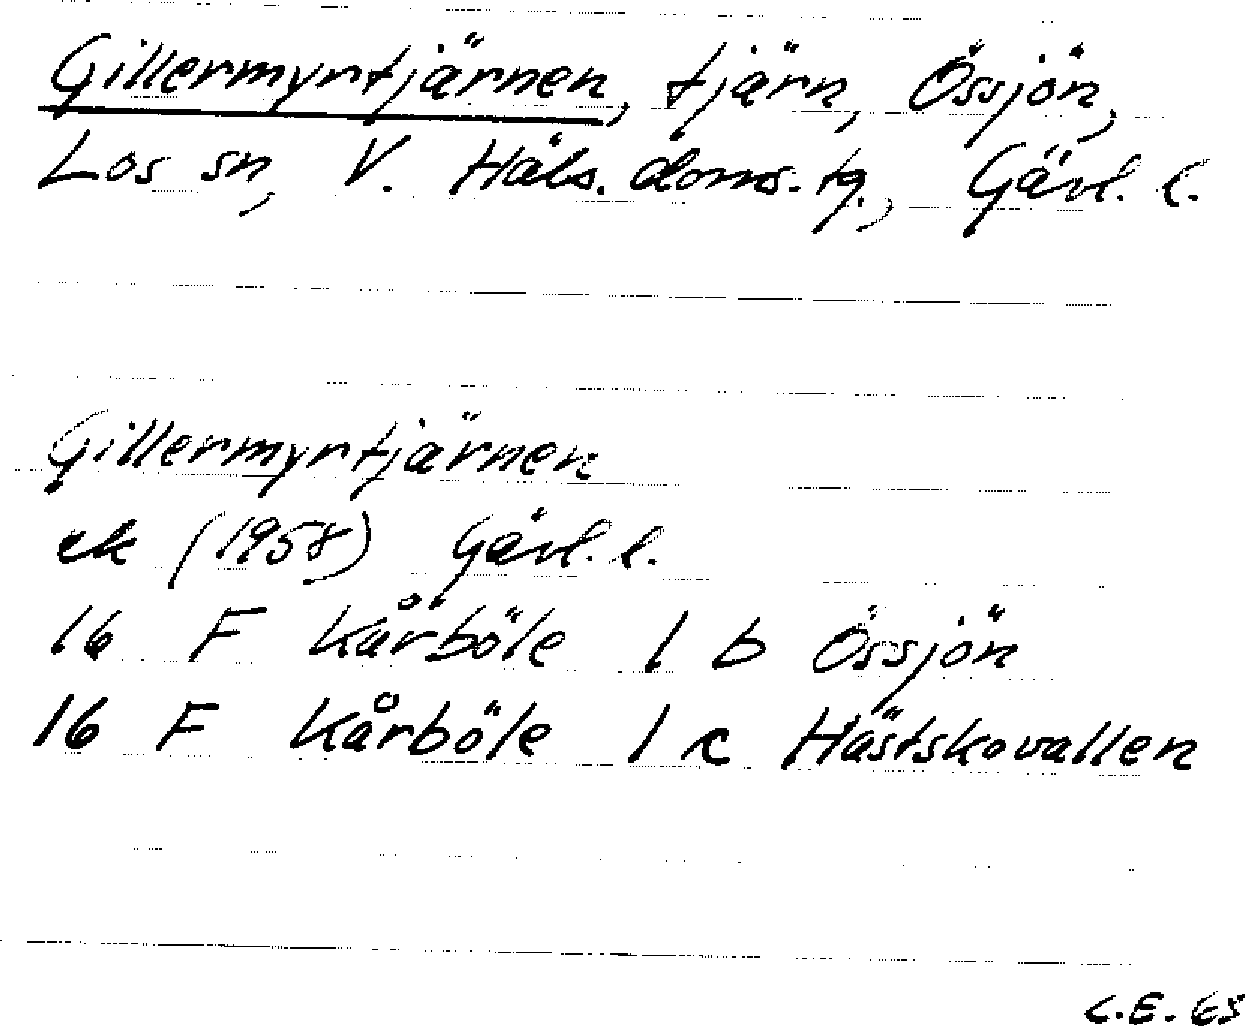 Gillermyrtjärnen, tjärn, Össjön,
Los sn, V. Häls. doms. tg., Gävl. l.
Gillermyrtjärnen
ek (1958) Gävl. l.
16 F Kårböle 1 b Össjön
16 F Kårböle 1 c Hästskovallen
C.E. 65